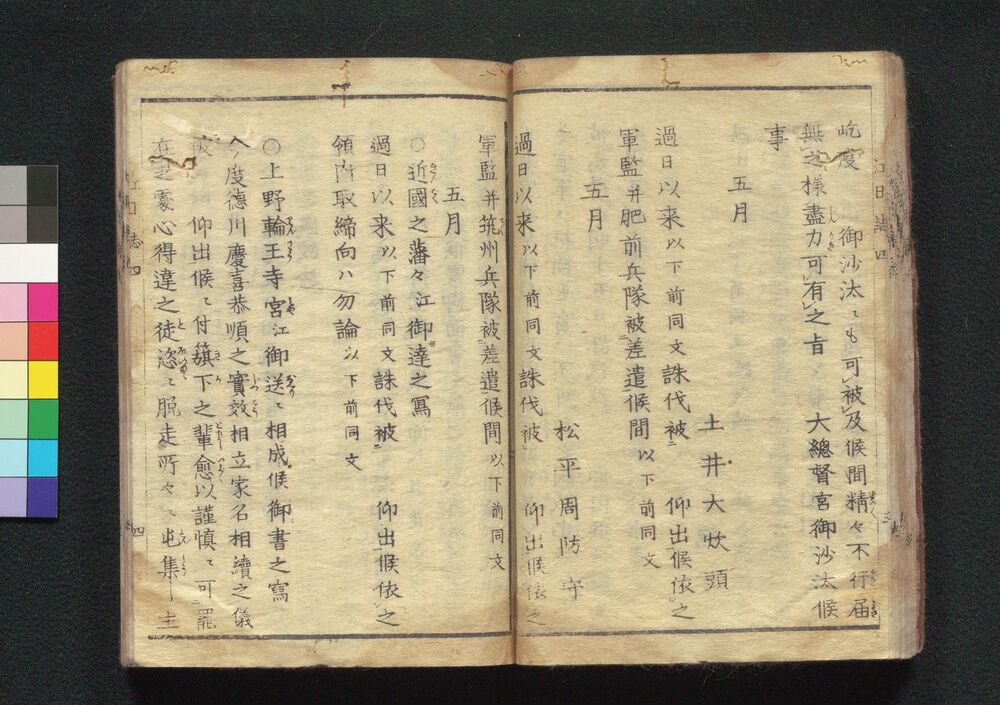 屹度 御沙汰ニも可被及候間精々不行届
無之様盡力可有之旨 大總督宮御沙汰候
事
五月
土井大炊頭
過日以来以下前同文誅伐被 仰出候依之
軍監并肥前兵隊被差遣候間以下前同文
五月
松平周防守
過日以来以下前同文誅伐被 仰出候依之
軍監并筑州兵隊被差遣候間以下前同文
五月
○近國之藩々江御達之寫
過日以来以下前同文誅伐被 仰出候依之
領内取締向ハ勿論以下前同文
○上野輪王寺宮江御送ニ相成候御書之寫
今度德川慶喜恭順之實效相立家名相續之儀
被 仰出候ニ付籏下之輩愈以謹慎ニ可罷
在之處心得違之徒恣ニ脱走所々ニ屯集し主
江日誌四
四